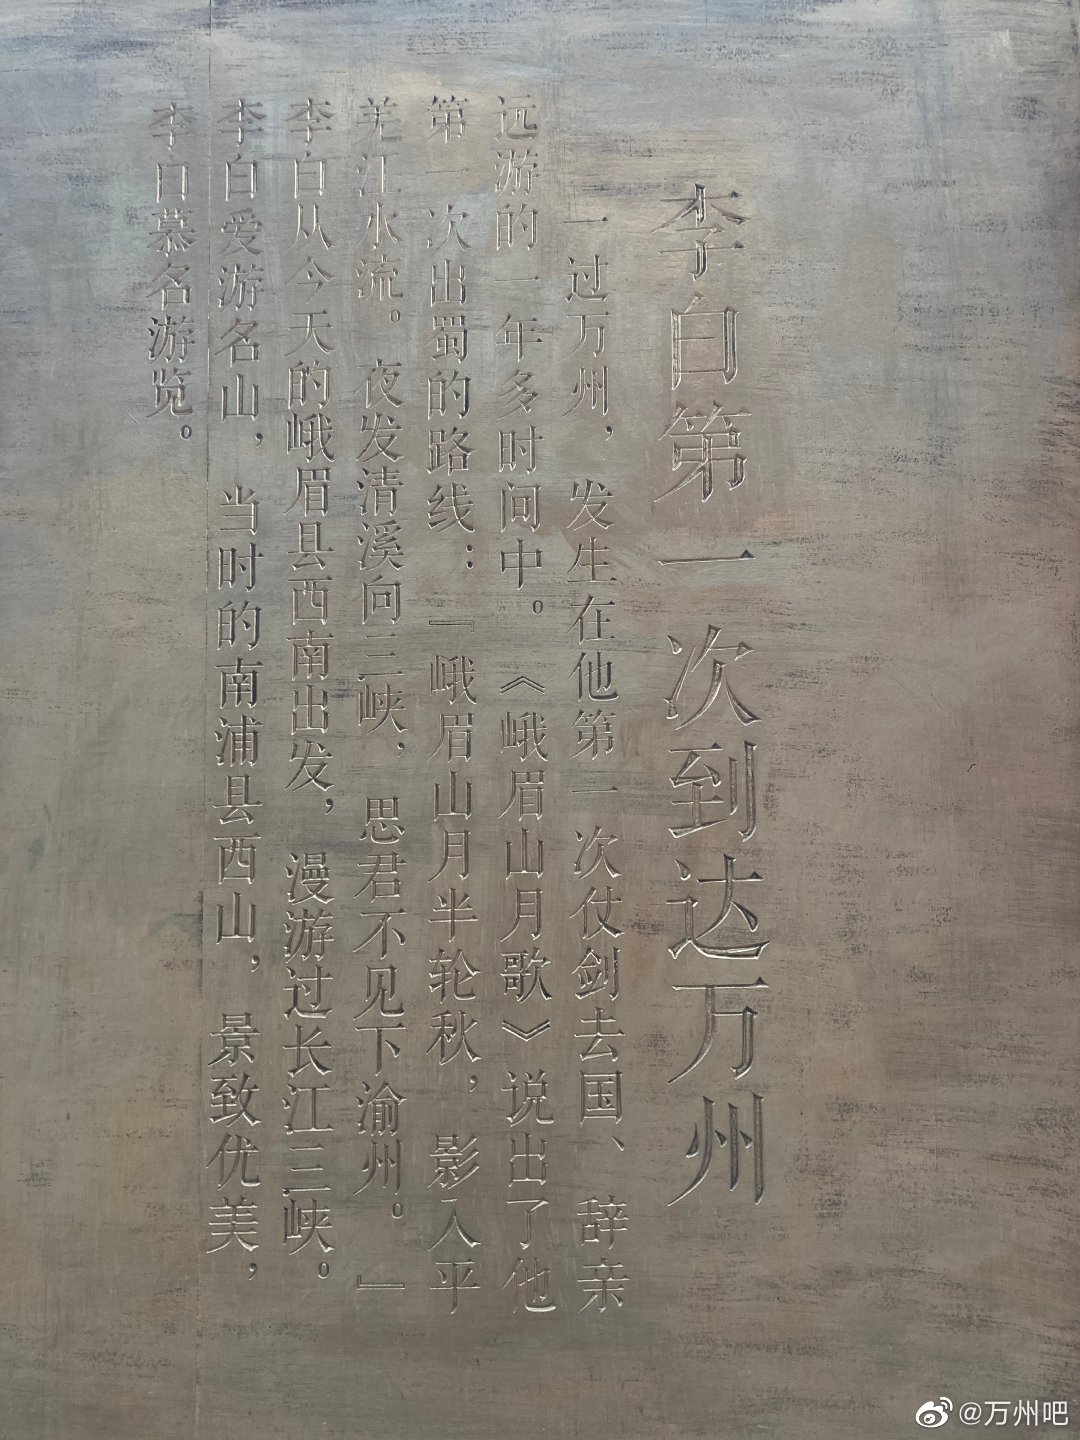 李白第一次到达万州
一过万州，发生在他第一次仗剑去国、辞亲
远游的一年多时间中。《峨眉山月歌》说出了他
第一次出蜀的路线：『峨眉山月半轮秋，影入平
羌江水流。夜发清溪向三峡，思君不见下渝州。』
李白从今天的峨眉县西南出发，漫游过长江三峡。
李白爱游名山，当时的南浦县西山，景致优美，
李白慕名游览。
@万州吧